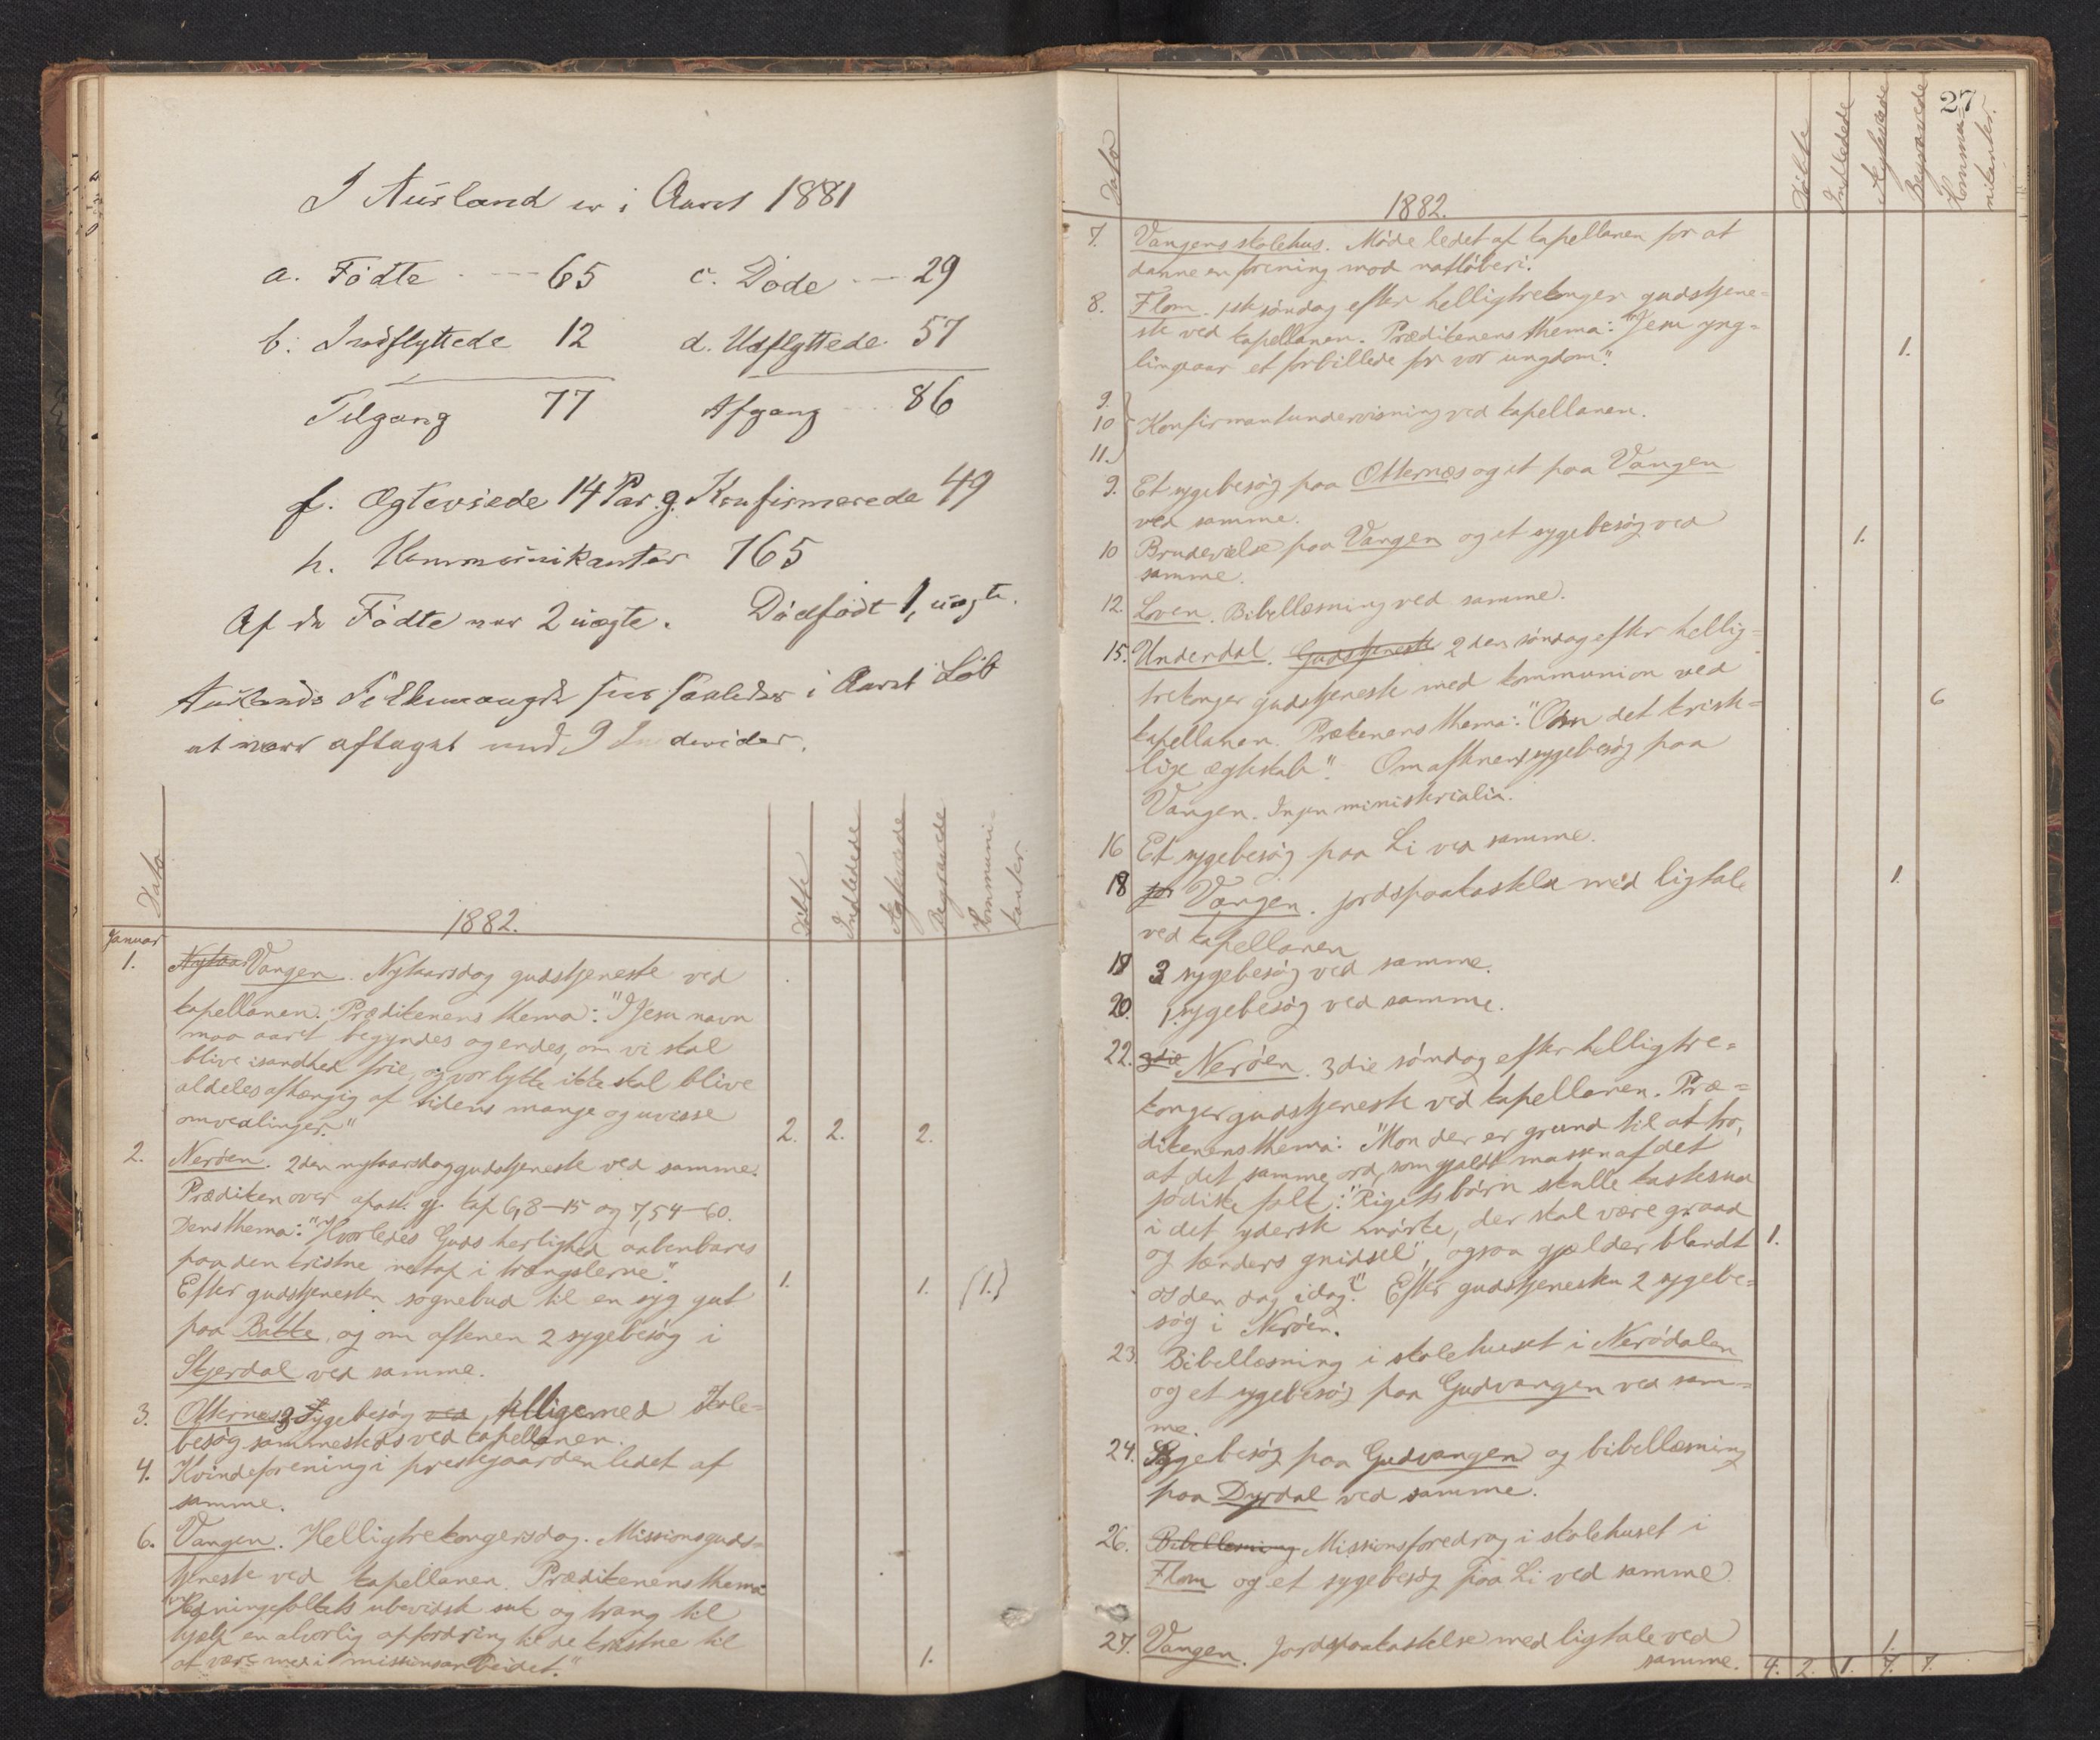 I Aurland er i Aaret 1881
a. Födte - - - - 65 c. Döde - - - 29
b. Indflyttede 12 d. Udflyttede 57
Tilgang 77 Afgang - - 86
f. Ægteviede 14 Par. g. Konfirmerede 49
h. Kommunikanter 765
Af de Födte var 2 uægte. Dödfödt 1, uægte.
Aurlands Folkemængde saaledes i Aaret Löb
at være aftaget med 9 Individer.
Dato
1882.
Döbte
Indledede
Ægteviede
Begravede
Kommuni-
kanter.
Januar
1. Nytaar Vangen. Nytaarsdag gudstjeneste ved
kapellanen. Prædikenens thema: "I Jesu navn
maa aaret begyndes og endes, om vi skal
blive isandhed frie, og vor lykke ikke skal blive
aldeles afhængig af tidens mange og uvisse
omvexlinger." 2. 2. 2.
2. Nerøen. 2den nytaarsdag gudstjeneste ved samme.
Prædiken over apost. gj. kap 6, 8-15 og 7, 54-60.
Dens thema: "Hvorledes Guds herlighed aabenbares
paa den kristne netop i trængslerne".
Efter gudstjenesten sognebud til en syg gut 1. 1. (1.)
paa Bakke, og om aftenen 2 sygebesög i
Skjerdal ved samme.
3. Otternes. 3 Sygebesög ved tilligemed skole-
besög sammesteds ved kapellanen.
4. Kvindeforening i prestegaarden ledet af
samme.
6. Vangen. Helligtrekongersdag. Missionsguds-
tjeneste ved kapellanen. Prædikenens thema
"Hedningefolkets ubevidste suk og trang til
hjælp en alvorlig opfordring til de kristne til
at være med i missionsarbeidet." 1.
27
Dato
1882.
Döbte
Indledede
Ægteviede
Begravede
Kommu-
nikanter.
7. Vangens skolehus. Möde ledet af kapellanen for at
danne en forening mod natløberi.
8. Flom. 1ste söndag efter helligtrekonger gudstjene-
ste ved kapellanen. Prædikenens thema: "Jesu yng-
lingeaar et forbillede for vor ungdom". 1.
9.
10 Konfirmantundervisning ved kapellanen.
11.
9. Et sygebesög paa Otternes og et paa Vangen
ved samme.
10 Brudevielse paa Vangen og et sygebesög ved 1.
samme.
12. Loven. Bibellæsning ved samme.
15. Underdal. Gudstjeneste 2den söndag efter hellig-
trekonger gudstjeneste med kommunion ved 6
kapellanen. Prækenens thema: "Om det krist-
lige ægteskab". Om aftenen sygebesög paa
Vangen. Ingen ministerialia.
16 Et sygebesög paa Li ved samme.
18 jor Vangen. jordspaakastelse med ligtale 1.
ved kapellanen
18 3 sygebesög ved samme.
20. 1. sygebesög ved samme.
22. 3die Nerøen. 3die söndag efter helligtre-
konger gudstjeneste ved kapellanen. Præ-
dikenens thema: "Mon der er grund til at tro,
at det samme ord, som gjaldt massen af det
jødiske folk: "Rigets börn skulle kastes ud
i det yderste mörke, der skal være graad
og tænders gnidsel", ogsaa gjælder blandt 1.
os den dag idag?" Efter gudstjenesten 2 sygebe-
søg i Nerøen.
23. Bibellæsning i skolehuset i Nerödalen
og et sygebesög paa Gudvangen ved sam-
me.
24. Sygebesög paa Gudvangen og bibellæsning
paa Dyrdal ved samme.
26. Bibellesning Missionsforedrag i skolehuset i
Flom og et sygebesög paa Li ved samme.
27. Vangen. Jordspaakastelse med ligtale ved 1.
samme. 4. 2. 1. 7. 7.